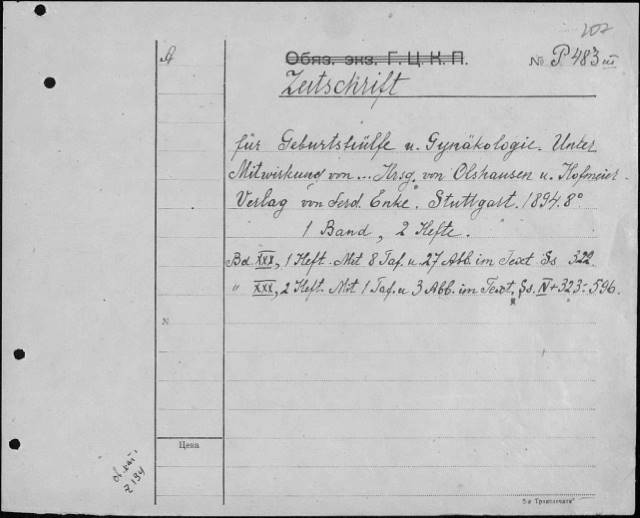 202
A
Обяз. экз. Г. Ц. К. П.
№ P 483 III
Zeitschrift
für Geburtshülfe u. Gynäkologie. Unter
Mitwirkung von ... Hrsg. von Olshausen u. Hofmeier
Verlag von Ferd. Enke. Stuttgart. 1894. 8°
1 Band, 2 Hefte.
Bd. XXX, 1 Heft. Mit 8 Taf. u. 27 Abb. im Text Ss 322.
" XXX, 2 Heft. Mit 1 Taf. u 3 Abb. im Text. Ss. IV + 323-596.
Цена